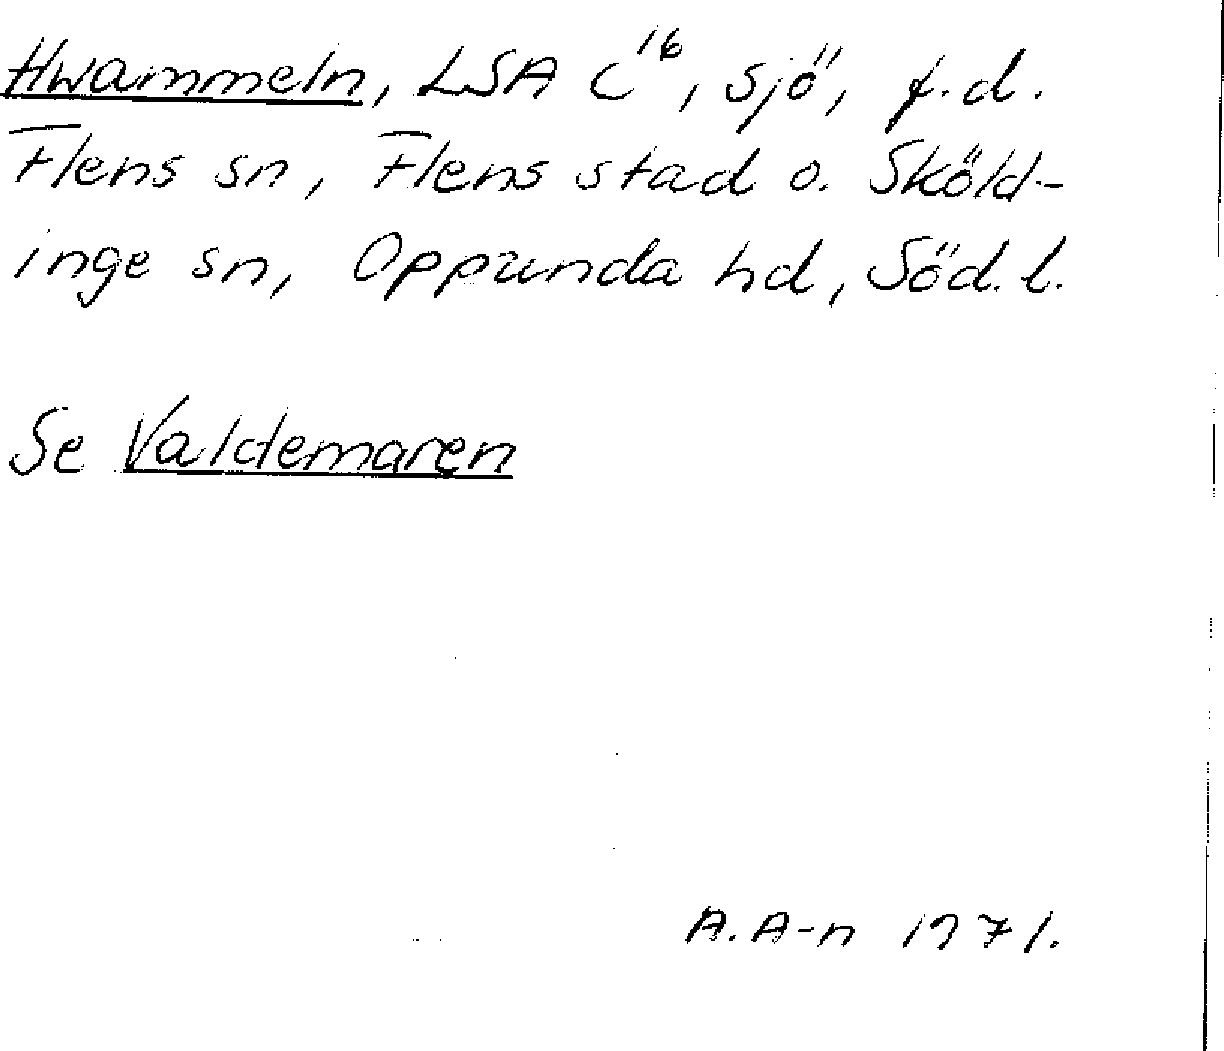 Hwammeln, LSA C¹⁶, sjö, f.d.
Flens sn, Flens stad o. Sköld-
inge sn, Oppunda hd, Söd. l.
Se Valdemaren
A. A-n 1971.